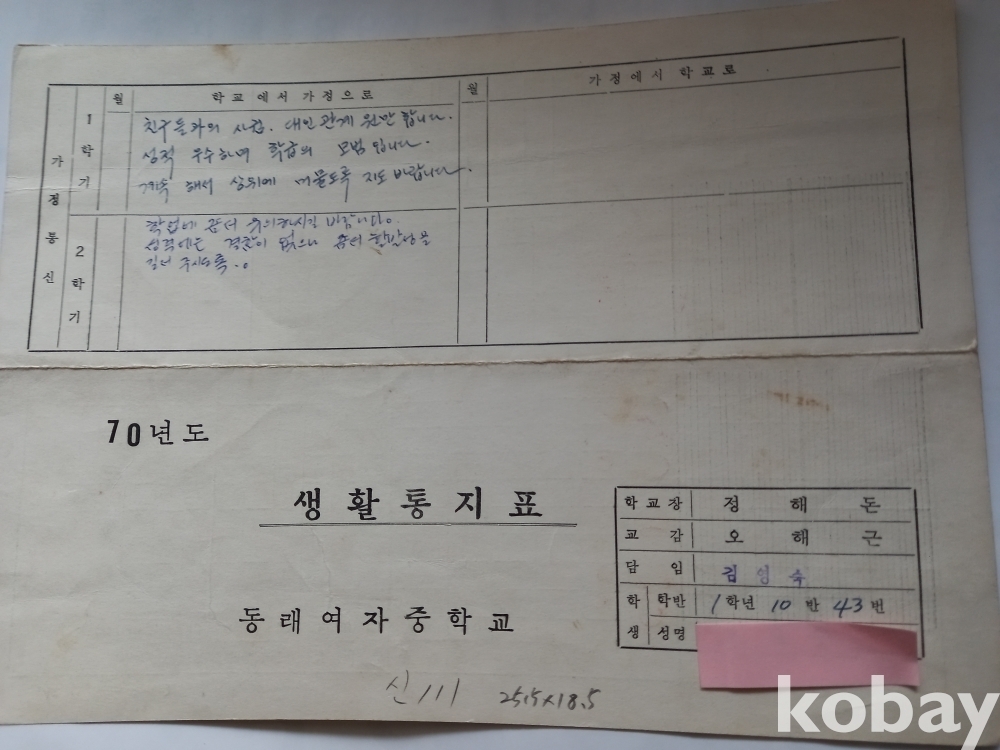 가정통신
월
학교에서 가정으로
월
가정에서 학교로
1학기
친구들과의 사귐. 대인관계 원만 합니다.
성적 우수하며 학급의 모범입니다.
계속 해서 상위에 머물도록 지도 바랍니다.
2학기
학업에 유의하시길 바랍니다.
성적에는 없으나
주시도록.
70년도
생활통지표
동래여자중학교
학교장 정해돈
교감 오해근
담임 김영숙
학생 학반 1학년 10반 43번
성명
신111 25.5x18.5
kobay